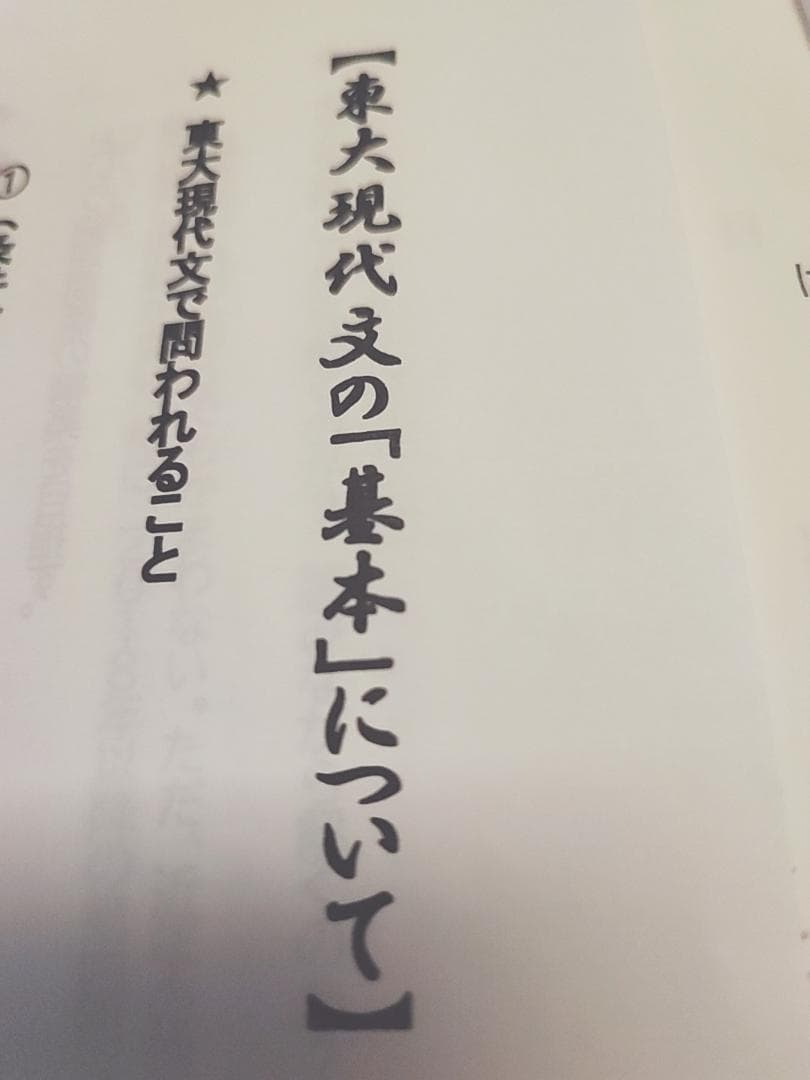 【東大現代文の「基本」について】
★ 東大現代文で問われること
①